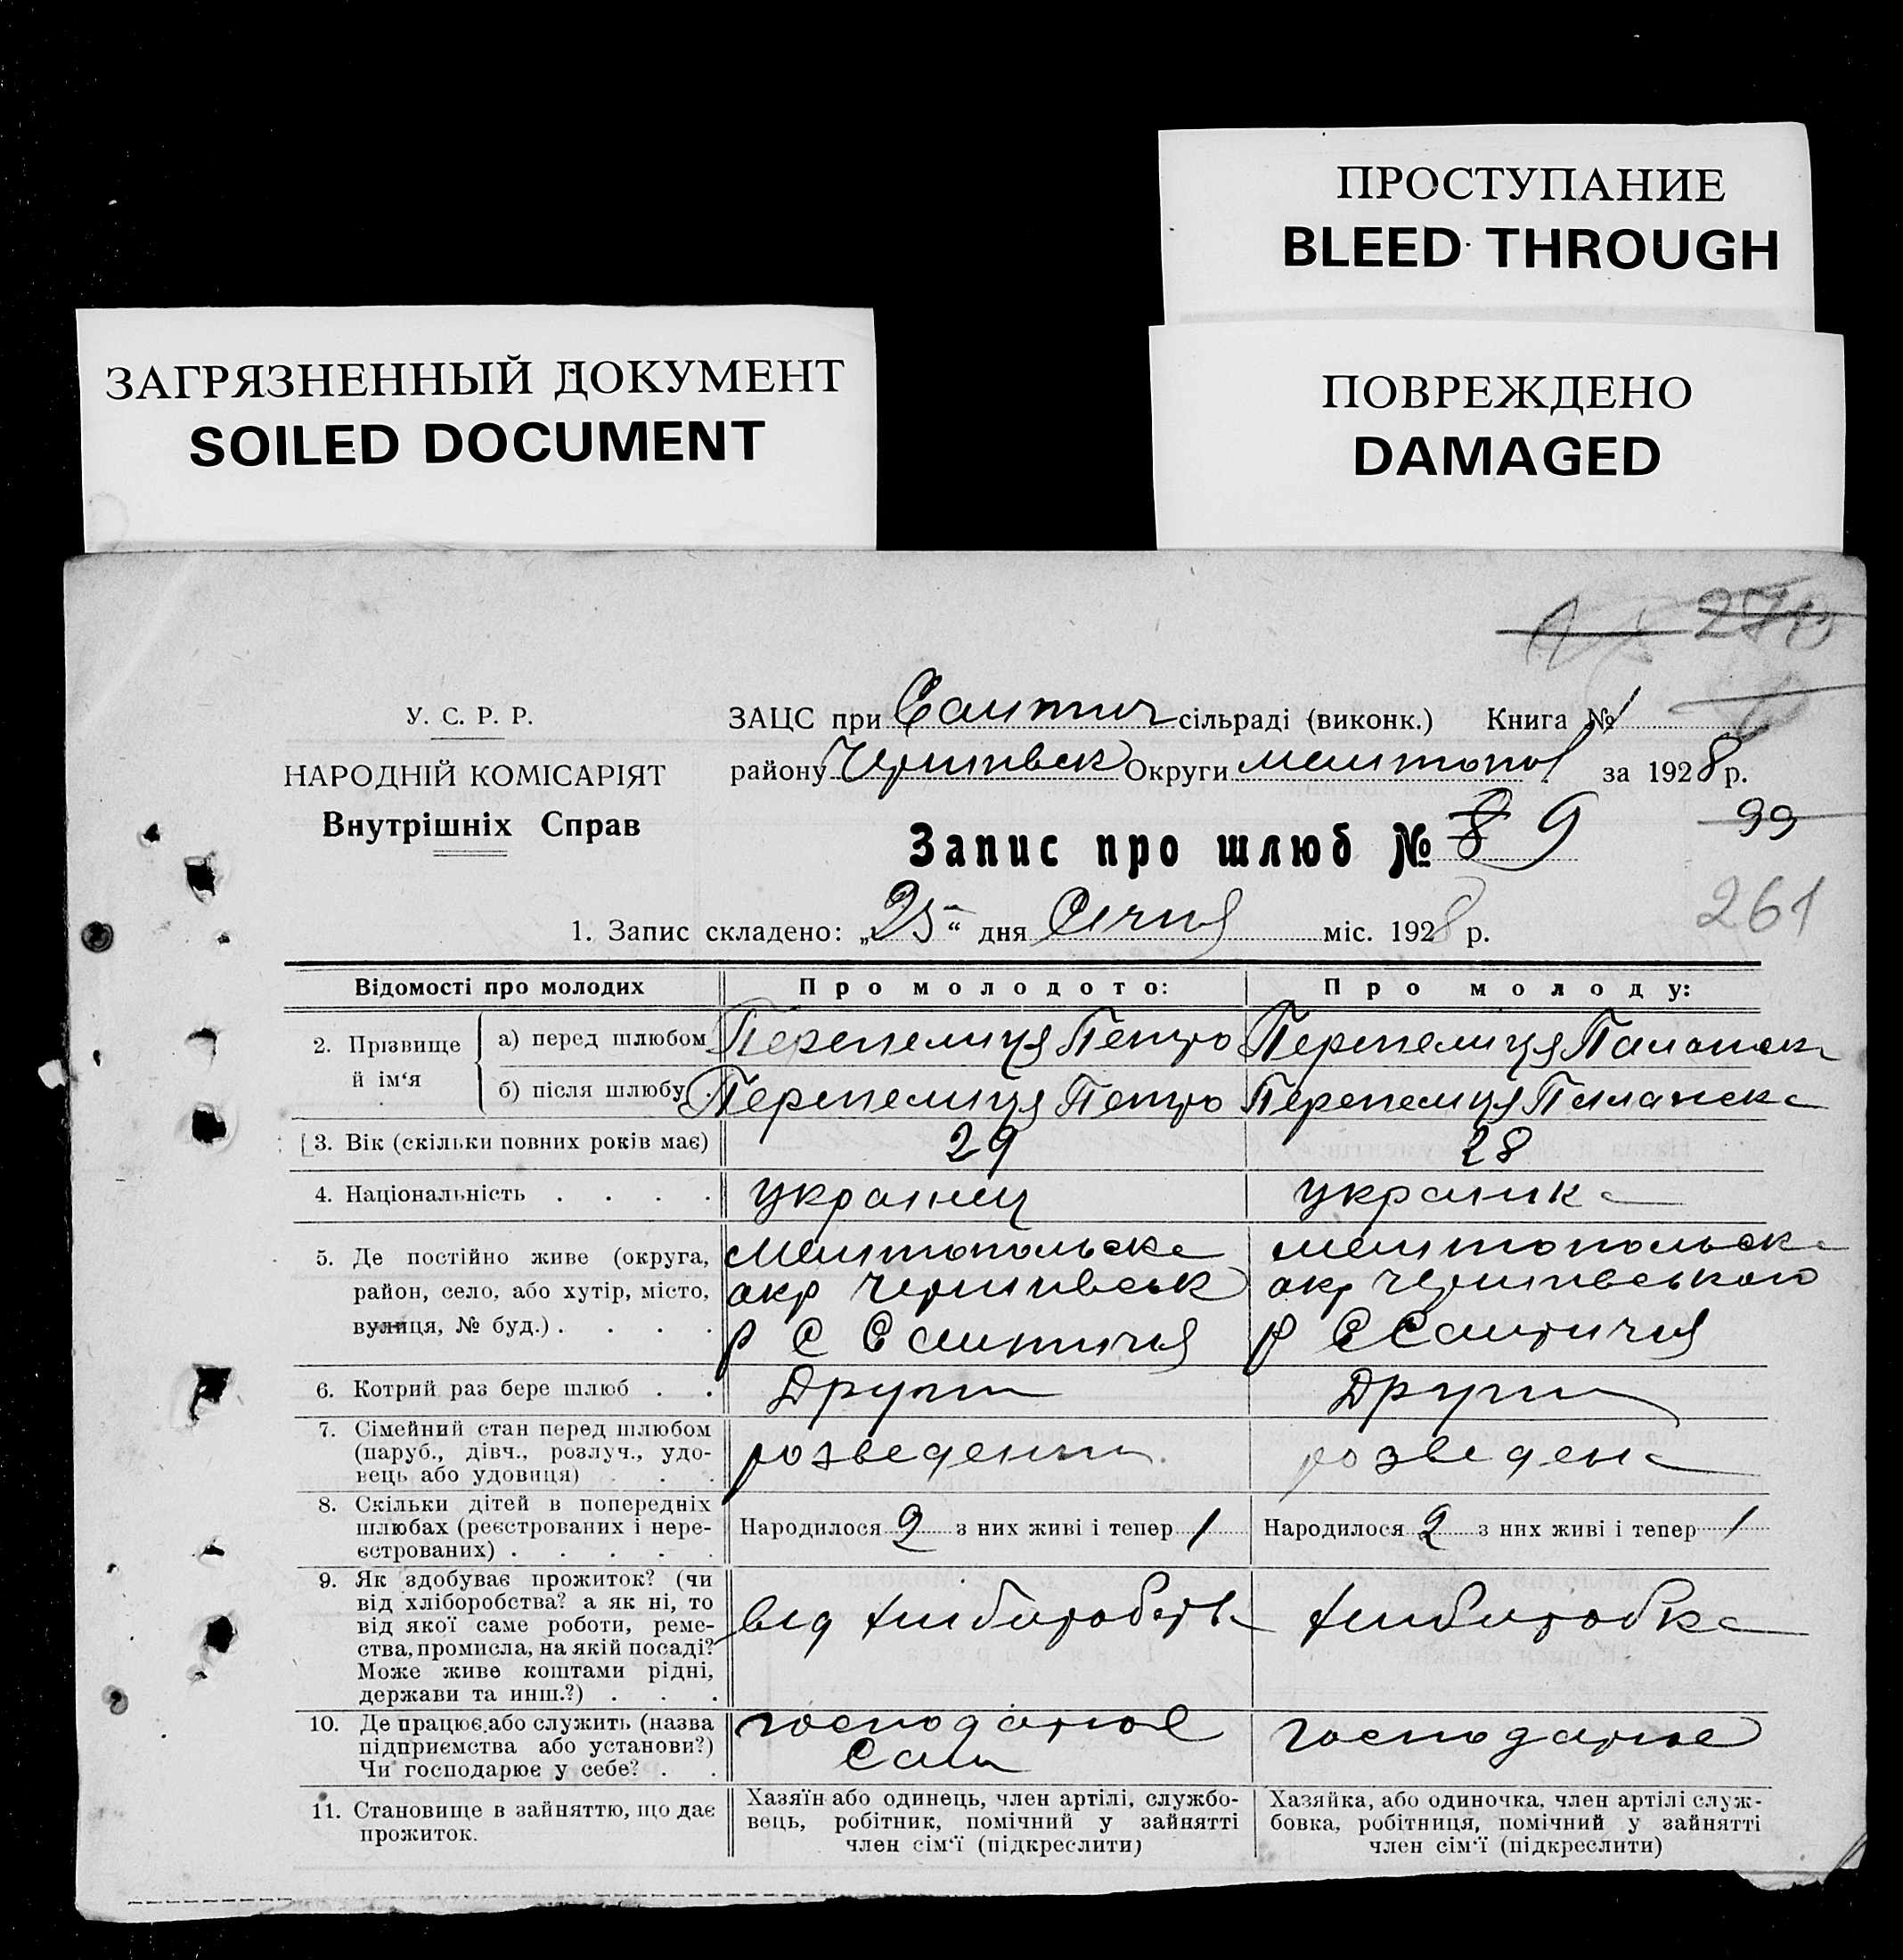 ПРОСТУПАНИЕ
BLEED THROUGH
ЗАГРЯЗНЕННЫЙ ДОКУМЕНТ
SOILED DOCUMENT
ПОВРЕЖДЕНО
DAMAGED
270
У. С. Р. Р.
НАРОДНІЙ КОМІСАРІЯТ
Внутрішніх Справ
ЗАЦС при Салтич сільраді (виконк.) Книга № 1
району Чернігівськ Округи Мелітопол за 1928 р.
Запис про шлюб № 8 9
99
1. Запис складено: „25“ дня Січня міс. 1928 р.
261
Відомості про молодих Про молодого: Про молоду:
2. Прізвище й ім‘я а) перед шлюбом Перепелиця Петро Перепелиця Палажка
б) після шлюбу Перепелиця Петро Перепелиця Палажка
3. Вік (скільки повних років має) 29 28
4. Національність українець українка
5. Де постійно живе (округа, Мелітопольска мелітопольска
район, село, або хутір, місто, окр Чернігівськ окр Чернігівського
вулиця, № буд.) р С Салтичія р С Салтичія
6. Котрий раз бере шлюб Другий Другий
7. Сімейний стан перед шлюбом
(паруб., дівч., розлуч., удо- розведений розведена
вець або удовиця)
8. Скільки дітей в попередніх
шлюбах (реєстрованих і нере- Народилося 2 з них живі і тепер 1 Народилося 2 з них живі і тепер 1
єстрованих)
9. Як здобуває прожиток? (чи
від хліборобства? а як ні, то
від якої саме роботи, реме- від хліборобств хліборобка
ства, промисла, на якій посаді?
Може живе коштами рідні,
держави та инш.?)
10. Де працює або служить (назва господарює господарює
підприємства або установи?) Сам
Чи господарює у себе?
11. Становище в зайняттю, що дає
прожиток.
Хазяїн або одинець, член артілі, службо-
вець, робітник, помічний у зайнятті
член сім‘ї (підкреслити)
Хазяйка, або одиночка, член артілі служ-
бовка, робітниця, помічний у зайнятті
член сім‘ї (підкреслити)